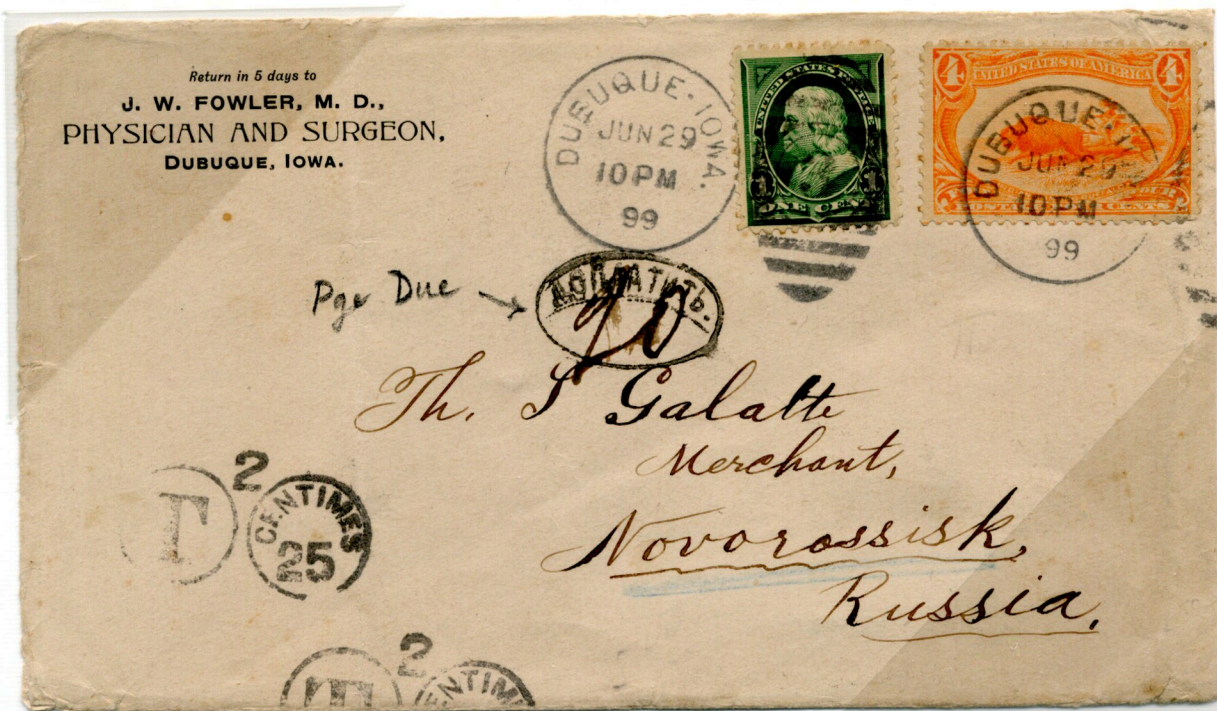 Return in 5 days to
J. W. FOWLER, M. D.,
PHYSICIAN AND SURGEON,
DUBUQUE, IOWA.
DUBUQUE, IOWA.
JUN 29
10 PM
99
UNITED STATES POSTAGE
1 1
ONE CENT
4 4
UNITED STATES OF AMERICA
POSTAGE CENTS
DUBUQUE
JUN 29
10 PM
99
Pge Due
ДОПЛАТИТЬ.
Th. S Galatte
Merchant,
Novorossisk,
Russia.
T
2
CENTIMES
25
T
2
CENTIMES